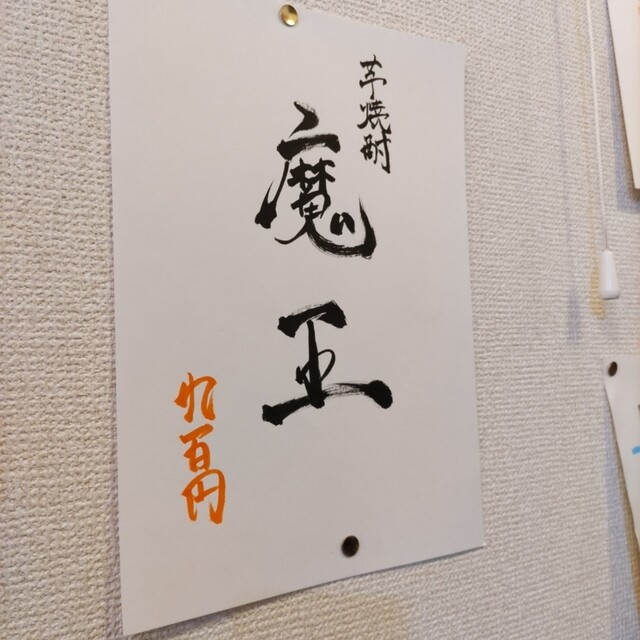 芋焼酎
魔王
九百円